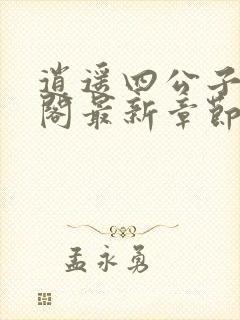 逍遥四公子
阁最新章节
孟永勇